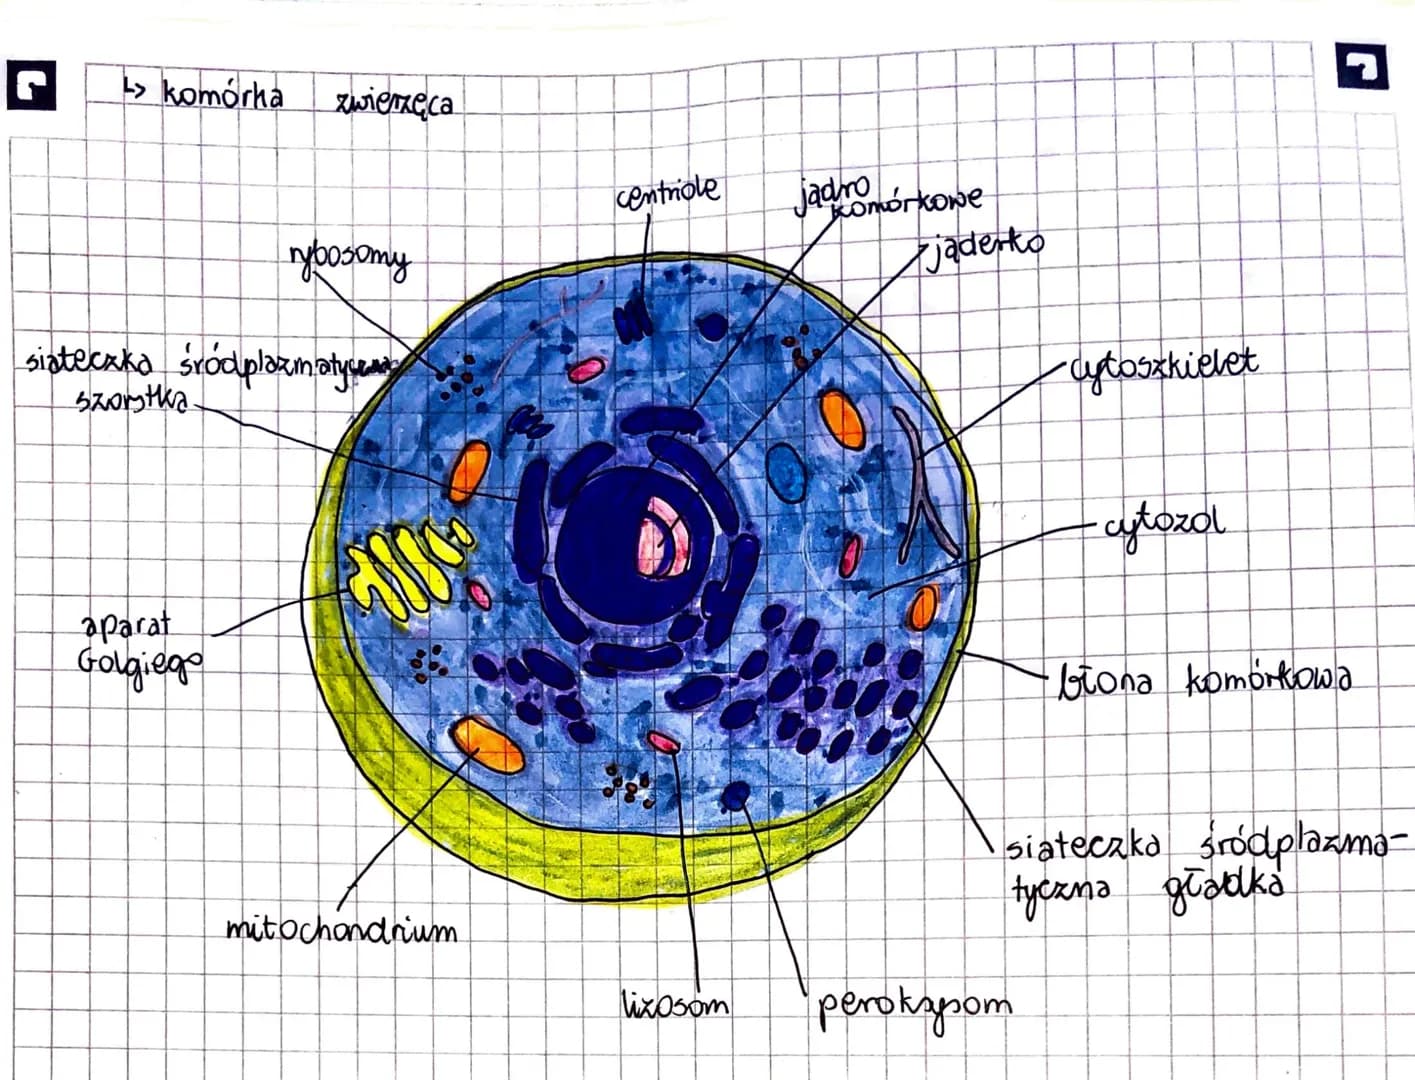 ↳ komórka zwierzęca
centriole
jądro
komórkowe
jąderko
rybosomy
siateczka śródplazmatyczna
szorstka
cytoszkielet
cytozol
aparat
Golgiego
błona komórkowa
siateczka śródplazma-
tyczna gładka
mitochondrium
lizosom
peroksysom